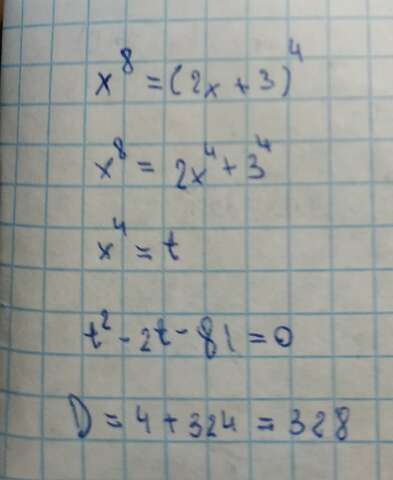 x⁸ = (2x + 3)⁴
x⁸ = 2x⁴ + 3⁴
x⁴ = t
t² - 2t - 81 = 0
D = 4 + 324 = 328